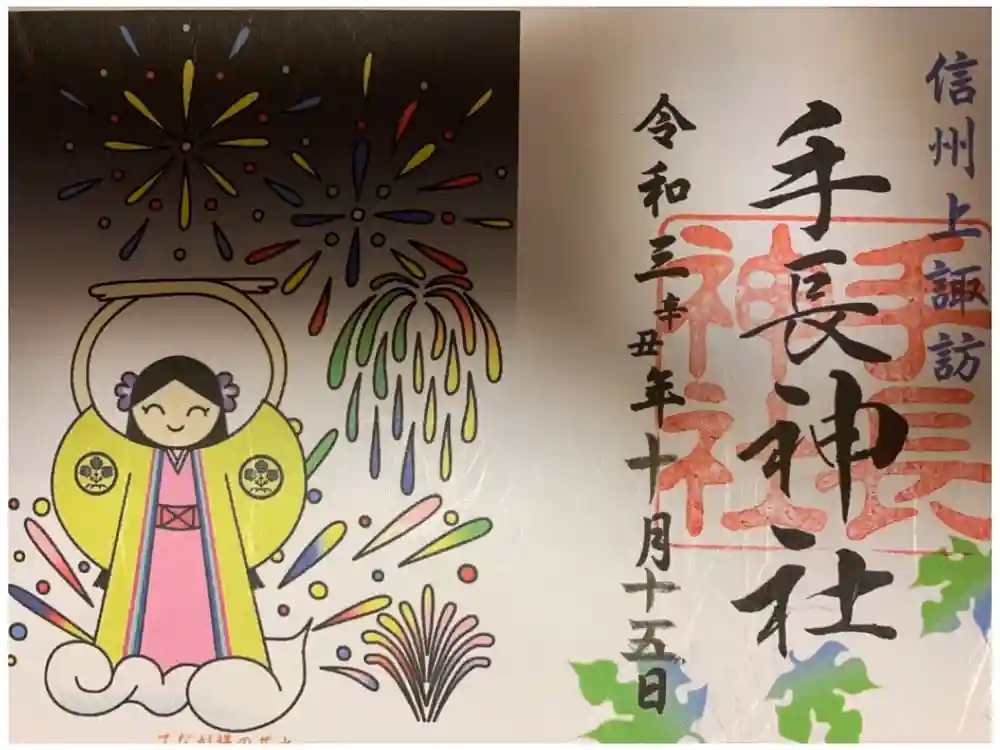 信州上諏訪
手長神社
手長
神社
令和三辛丑年十月十五日
てなが様の花火